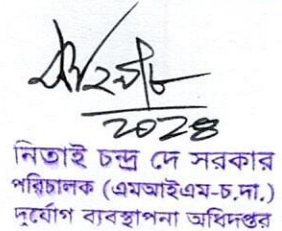 ২০২৪
নিতাই চন্দ্র দে সরকার
পরিচালক (এমআইএম-চ.দা.)
দুর্যোগ ব্যবস্থাপনা অধিদপ্তর